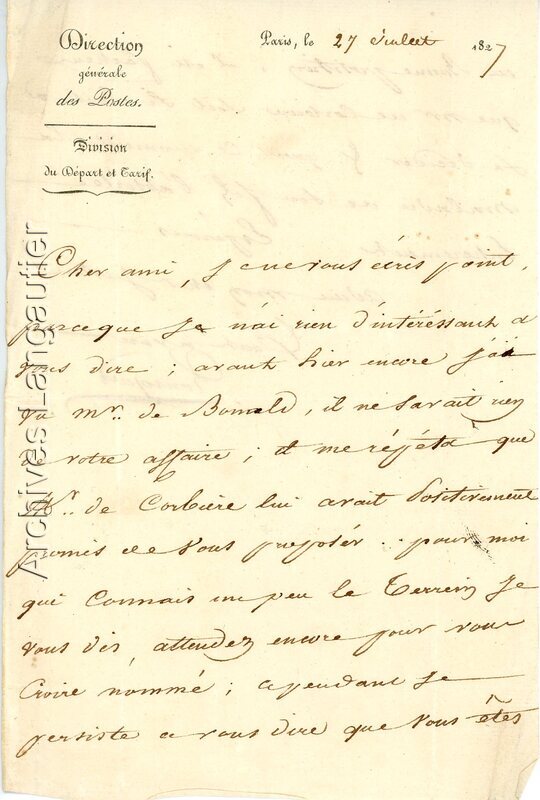 Direction
générale
des Postes.
Division
du Départ et Tarif.
Paris, le 27 Juillet 1827
Cher ami, je ne vous écris point,
parceque je n'ai rien d'intéréssant a
vous dire ; avant hier encore j'ai
vu mr. de Bonald, il ne savait rien
de votre affaire ; il me répéta que
Mr. de Corbiere lui avait positivement
promis de vous proposér .. pour moi
qui connais un peu le terrein je
vous dis, attendez encore pour vous
croire nommé ; cependant je
persiste a vous dire que vous êtes
Archives Langautier